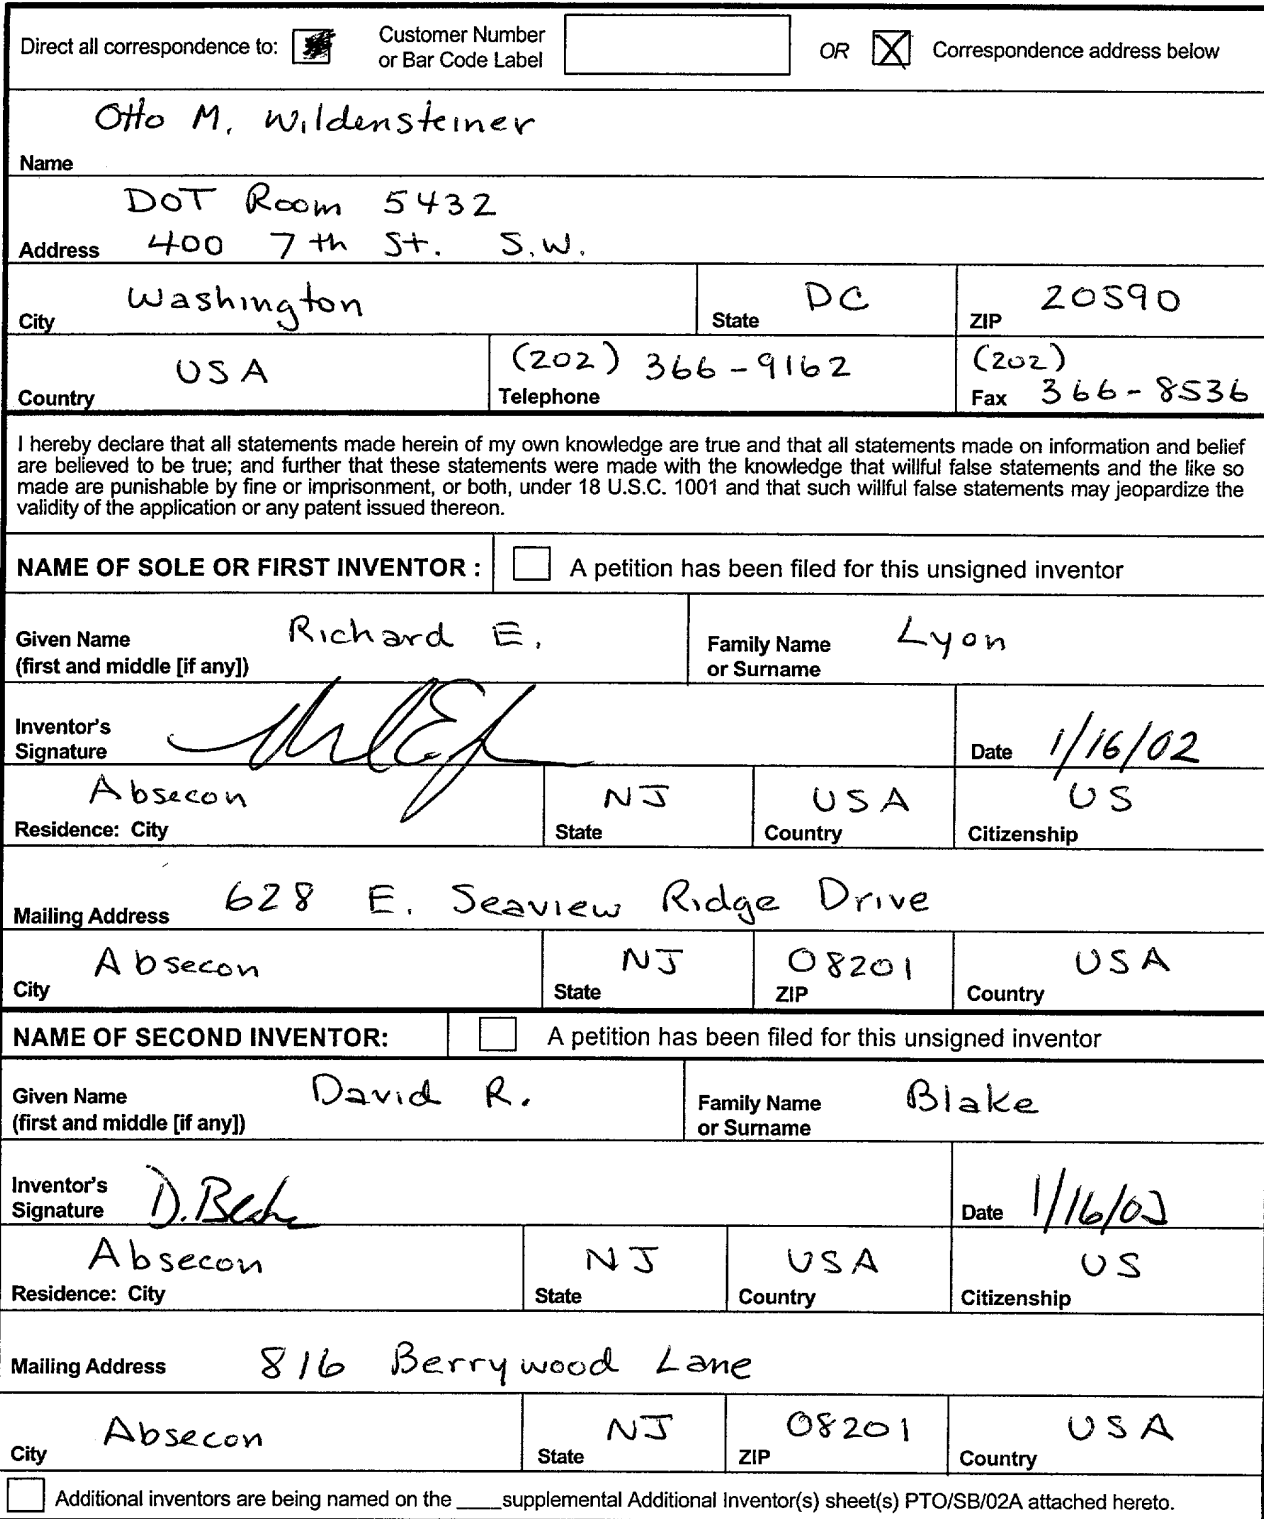 Direct all correspondence to: Customer Number or Bar Code Label OR X Correspondence address below
Otto M. Wildensteiner
Name
DOT Room 5432
Address 400 7th St. S.W.
Washington DC 20590
City State ZIP
USA (202) 366-9162 (202)
Country Telephone Fax 366-8536
I hereby declare that all statements made herein of my own knowledge are true and that all statements made on information and belief
are believed to be true; and further that these statements were made with the knowledge that willful false statements and the like so
made are punishable by fine or imprisonment, or both, under 18 U.S.C. 1001 and that such willful false statements may jeopardize the
validity of the application or any patent issued thereon.
NAME OF SOLE OR FIRST INVENTOR : A petition has been filed for this unsigned inventor
Given Name Richard E. Family Name Lyon
(first and middle [if any]) or Surname
Inventor's
Signature Date 1/16/02
Absecon NJ USA US
Residence: City State Country Citizenship
Mailing Address 628 E. Seaview Ridge Drive
Absecon NJ 08201 USA
City State ZIP Country
NAME OF SECOND INVENTOR: A petition has been filed for this unsigned inventor
Given Name David R. Family Name Blake
(first and middle [if any]) or Surname
Inventor's
Signature D. Blake Date 1/16/02
Absecon NJ USA US
Residence: City State Country Citizenship
Mailing Address 816 Berrywood Lane
Absecon NJ 08201 USA
City State ZIP Country
Additional inventors are being named on the ____supplemental Additional Inventor(s) sheet(s) PTO/SB/02A attached hereto.